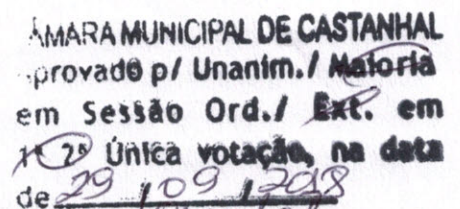 ÂMARA MUNICIPAL DE CASTANHAL
provado p/ Unanim./ Maioria
em Sessão Ord./ Ext. em
1ª 2ª Única votação, na data
de 29 / 09 / 2018